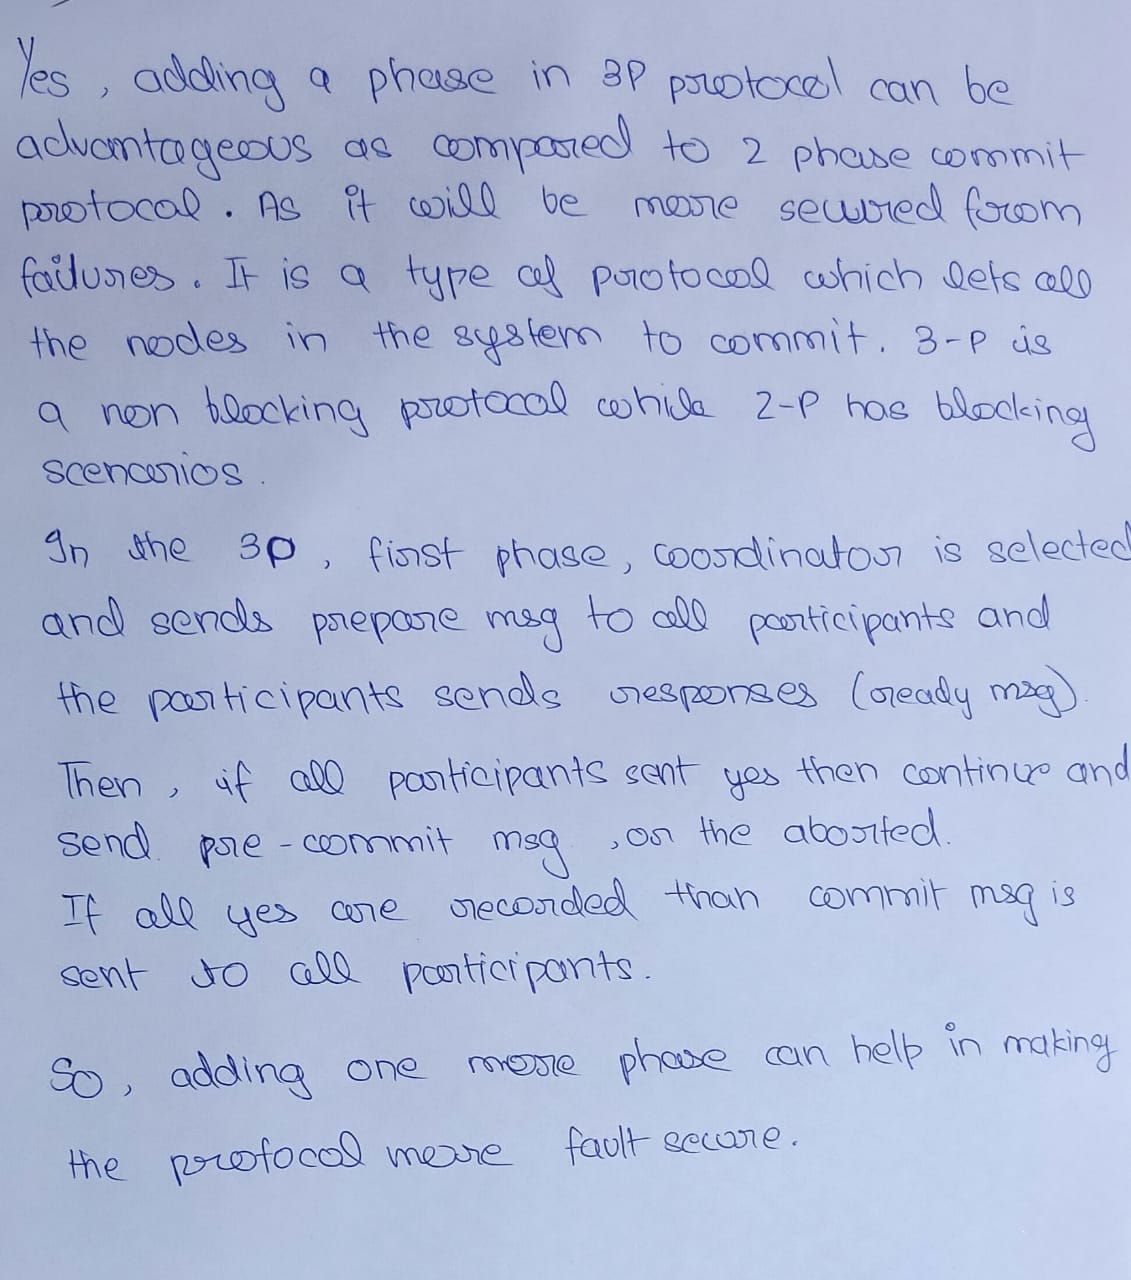 Yes, adding a phase in 3P protocol can be
advantageous as compared to 2 phase commit
protocol. As it will be more secured from
failures. It is a type of protocol which lets all
the nodes in the system to commit. 3-P is
a non blocking protocol while 2-P has blocking
scenarios.
In the 3P, first phase, coordinator is selected
and sends prepare msg to all participants and
the participants sends responses (ready msg).
Then, if all participants sent yes then continue and
send pre-commit msg, or the aborted.
If all yes are recorded than commit msg is
sent to all participants.
So, adding one more phase can help in making
the protocol more fault secure.